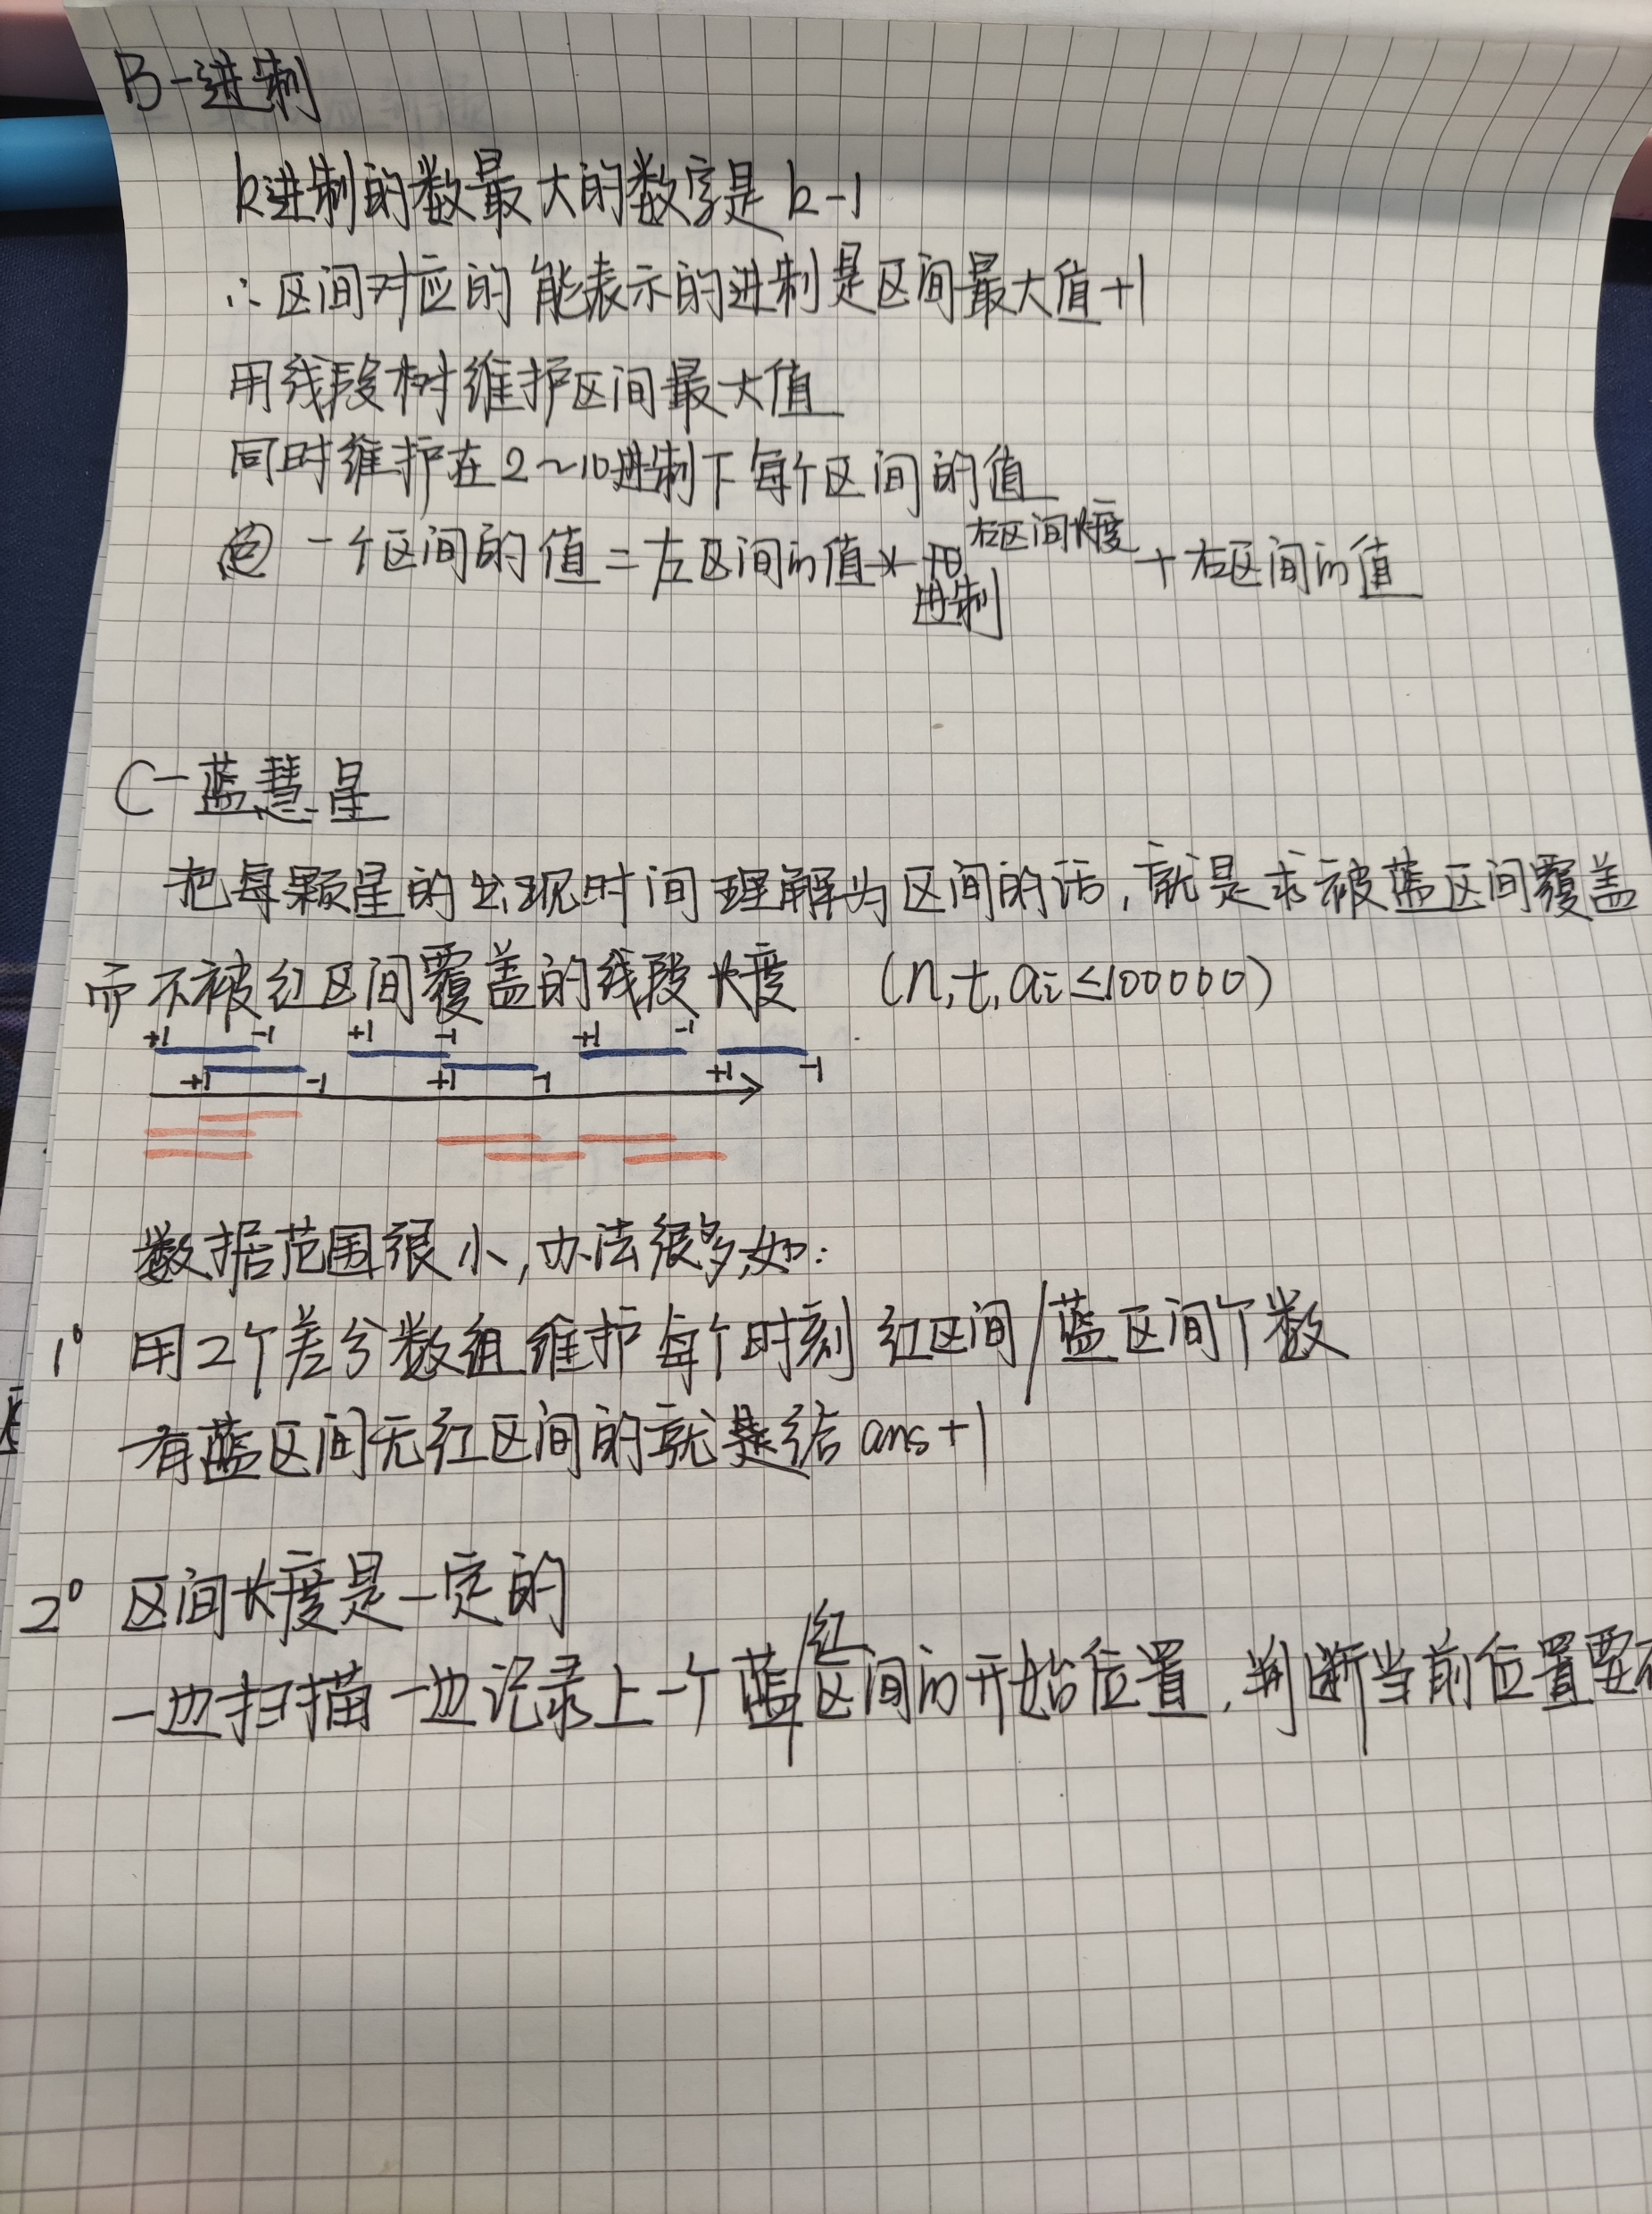 B-进制
k进制的数最大的数字是k-1
∴区间对应的能表示的进制是区间最大值+1
用线段树维护区间最大值
同时维护在2~10进制下每个区间的值
一个区间的值=左区间的值*进制^右区间长度+右区间的值
C-蓝慧星
把每颗星的出现时间理解为区间的话,就是求被蓝区间覆盖
而不被红区间覆盖的线段长度 (n,t,ai≤100000)
+1 -1 +1 -1 +1 -1
+1 -1 +1 -1 +1 -1
数据范围很小,办法很多,如:
1° 用2个差分数组维护每个时刻红区间/蓝区间个数
有蓝区间无红区间的就是给ans+1
2° 区间长度是一定的
一边扫描一边记录上一个蓝/红区间的开始位置,判断当前位置要